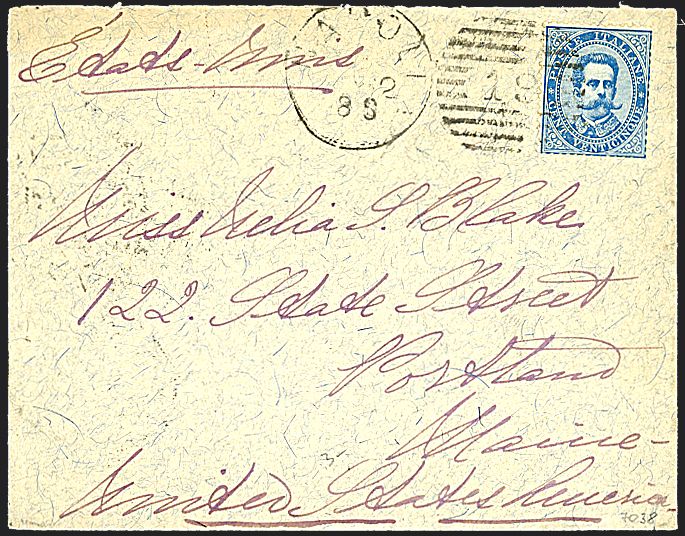 États-Unis
2
88
19
POSTE ITALIANE
CENT. VENTICINQUE
Miss Julia S. Blake
122. State Street
Portland
Maine-
United States America
7038